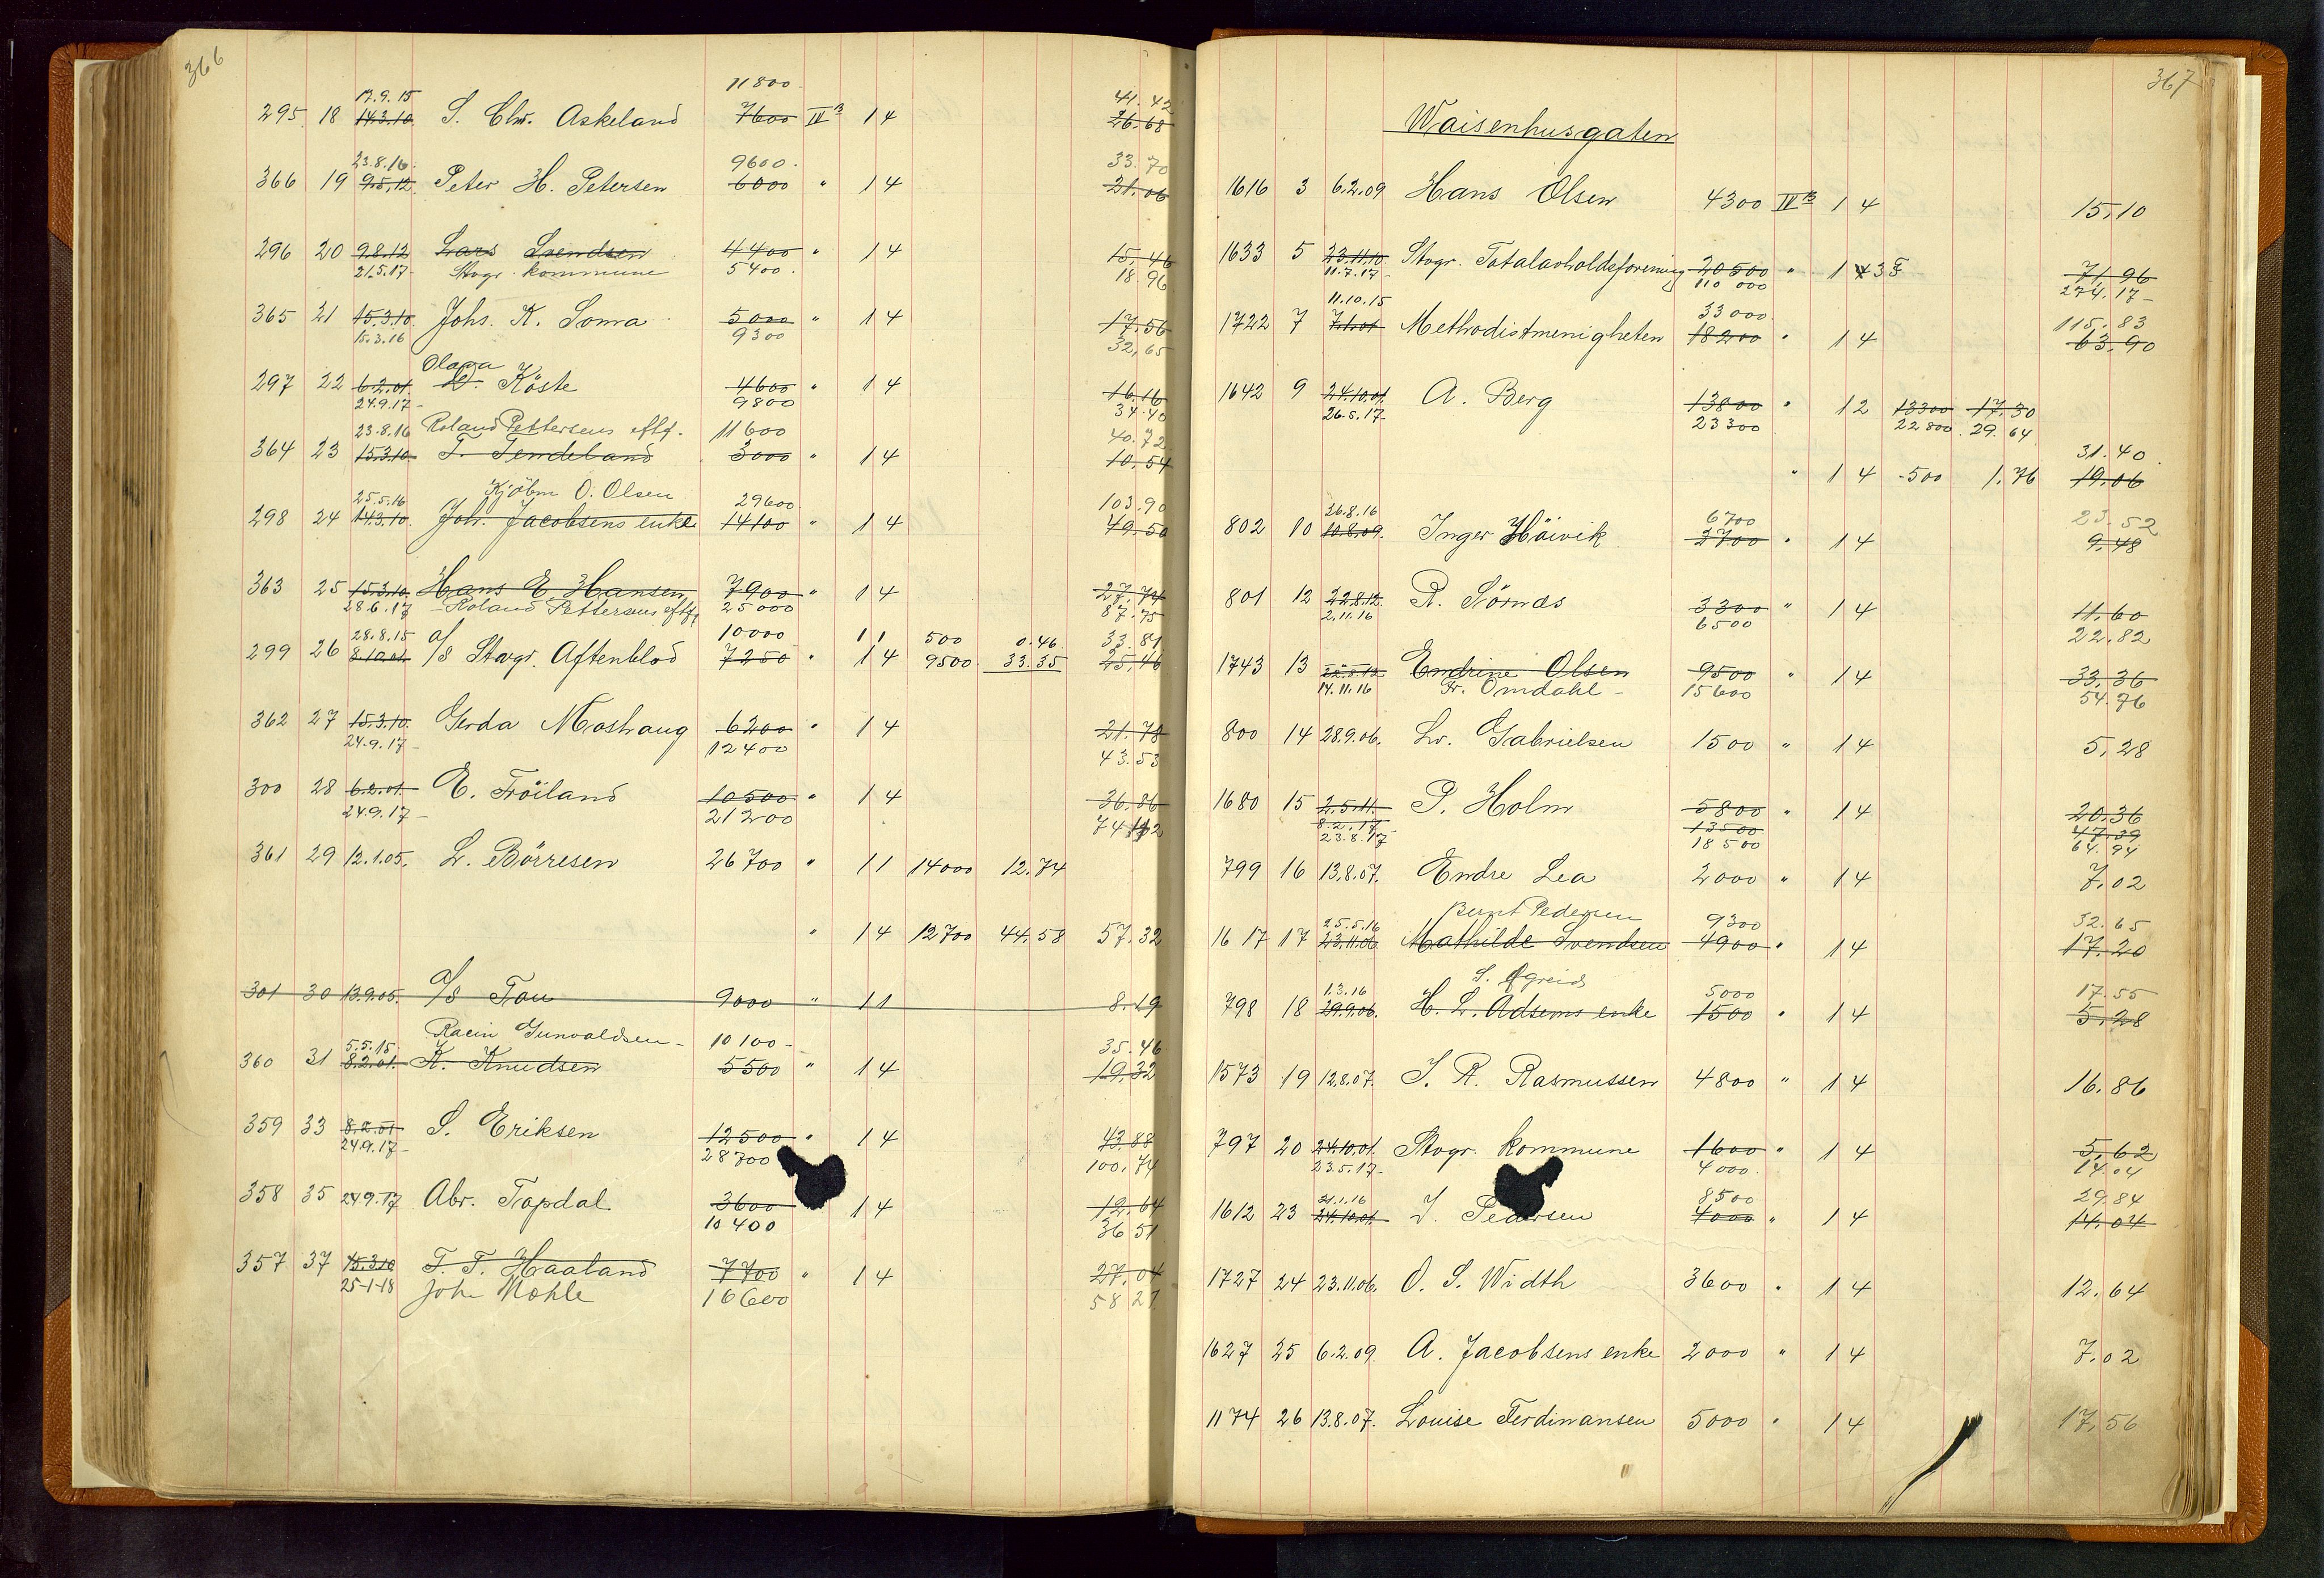 366
11800
17.9.15 41.42
295 18 14.3.10 S. Chr. Askeland 7600 IV B 14 26.68
23.8.16 9600 33.70
366 19 9.5.12 Peter H. Petersen 6000 " 14 21.06
296 20 9.8.12 Lars Svendsen 4400 " 14 15.46
21.5.17 Stvgr. kommune 5400 18.96
365 21 15.3.10 Johs. K. Soma 5000 " 14 17.56
15.3.16 9300 32,65
Olava
297 22 6.2.01 Köste 4600 " 14 16.16
24.9.17 9800 34.40
23.8.16 Roland Pettersens eftf. 11600 40.72
364 23 15.3.10 T. Tendeland 3000 " 14 10.54
25.5.16 Kjöbm O. Olsen 29600 103.90
298 24 14.3.10 Joh. Jacobsens enke 14100 " 14 49.50
363 25 15.3.10 Hans E. Hansen 7900 " 14 27.74
28.6.17 Roland Pettersens eftf. 25000 87.75
28.8.15 10000 11 500 0.46 33.81
299 26 8.10.01 a/s Stvgr. Aftenblad 7250 " 14 9500 33.35 25.46
362 27 15.3.10 Gerda Moshaug 6200 " 14 21.78
24.9.17 12400 43.53
300 28 6.2.01 E. Fröiland 10500 " 14 36.86
24.9.17 21200 74.42
361 29 12.1.05. L. Börresen 26700 " 11 14000 12.74
" 14 12700 44.58 57.32
301 30 13.9.05. a/s Tou 9000 " 11 8.19
5.5.15 Racin Gunvaldsen 10100 35.46
360 31 8.2.01 K. Knudsen 5500 " 14 19.32
359 33 8.2.01 S. Eriksen 12500 " 14 43.88
24.9.17 28700 100.74
358 35 24.9.17 Abr. Topdal 3600 14 12.64
10400 36 51
357 37 15.3.10 T. T. Haaland 7700 " 14 27.04
25-1-18 Joh. Mohle 16600 58 27
367
Waisenhusgaten
1616 3 6.2.09 Hans Olsen 4300 IV B 14 15,10
1633 5 23.11.10 Stvgr. Totalavholdsforening 20500 " 1 4 3 71,96
11.7.17 110 000 274.17
11.10.15 33000 115.83
1722 7 7.1.01 Methodistmenigheten 18200 " 14 63,90
1642 9 24.10.01 A. Berg 13800 " 12 13300 17.30
26.5.17 23300 22800 29.64
31.40
" 14 500 1.76 19.06
26.8.16 6700 23.52
802 10 10.8.09. Inger Höivik 2700 " 14 9.48
801 12 22.8.12 R. Sörnæs 3300 " 14 11.60
2.11.16 6500 22.82
1743 13 22.8.12 Endrine Olsen 9500 " 14 33,36
14.11.16 Fr. Omdahl 15600 54.76
800 14 28.9.06. Lr. Gabrielsen 1500 " 14 5,28
1680 15 2.5.11. P. Holm 5800 " 14 20.36
8.2.17 13500 47.39
23.8.17 18500 64.94
799 16 13.8.07. Endre Lea 2000 " 14 7.02
25.5.16 Bernt Pedersen 9300 32.65
1617 17 23.11.06 Mathilde Svendsen 4900 " 14 17.20
1.3.16 S. Egreid 5000 17.55
798 18 29.9.06. H. L. Adsems enke 1500 " 14 5.28
1573 19 12.8.07. J. R. Rasmussen 4800 " 14 16.86
797 20 24.10.01 Stvgr. kommune 1600 " 14 5,62
23.5.17 4000 14.04
21.1.16 8500 29.84
1612 23 24.10.01 J. Pedersen 4000 " 14 14.04
1727 24 23.11.06. O. S. Width 3600 " 14 12.64
1627 25 6.2.09. A. Jacobsens enke 2000 " 14 7.02
1174 26 13.8.07. Louise Ferdinansen 5000 " 14 17,56